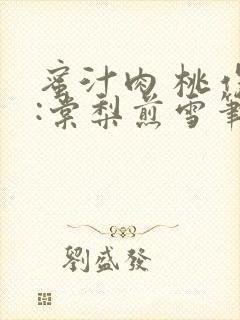 蜜汁肉桃作
:棠梨煎雪筆
劉盛發